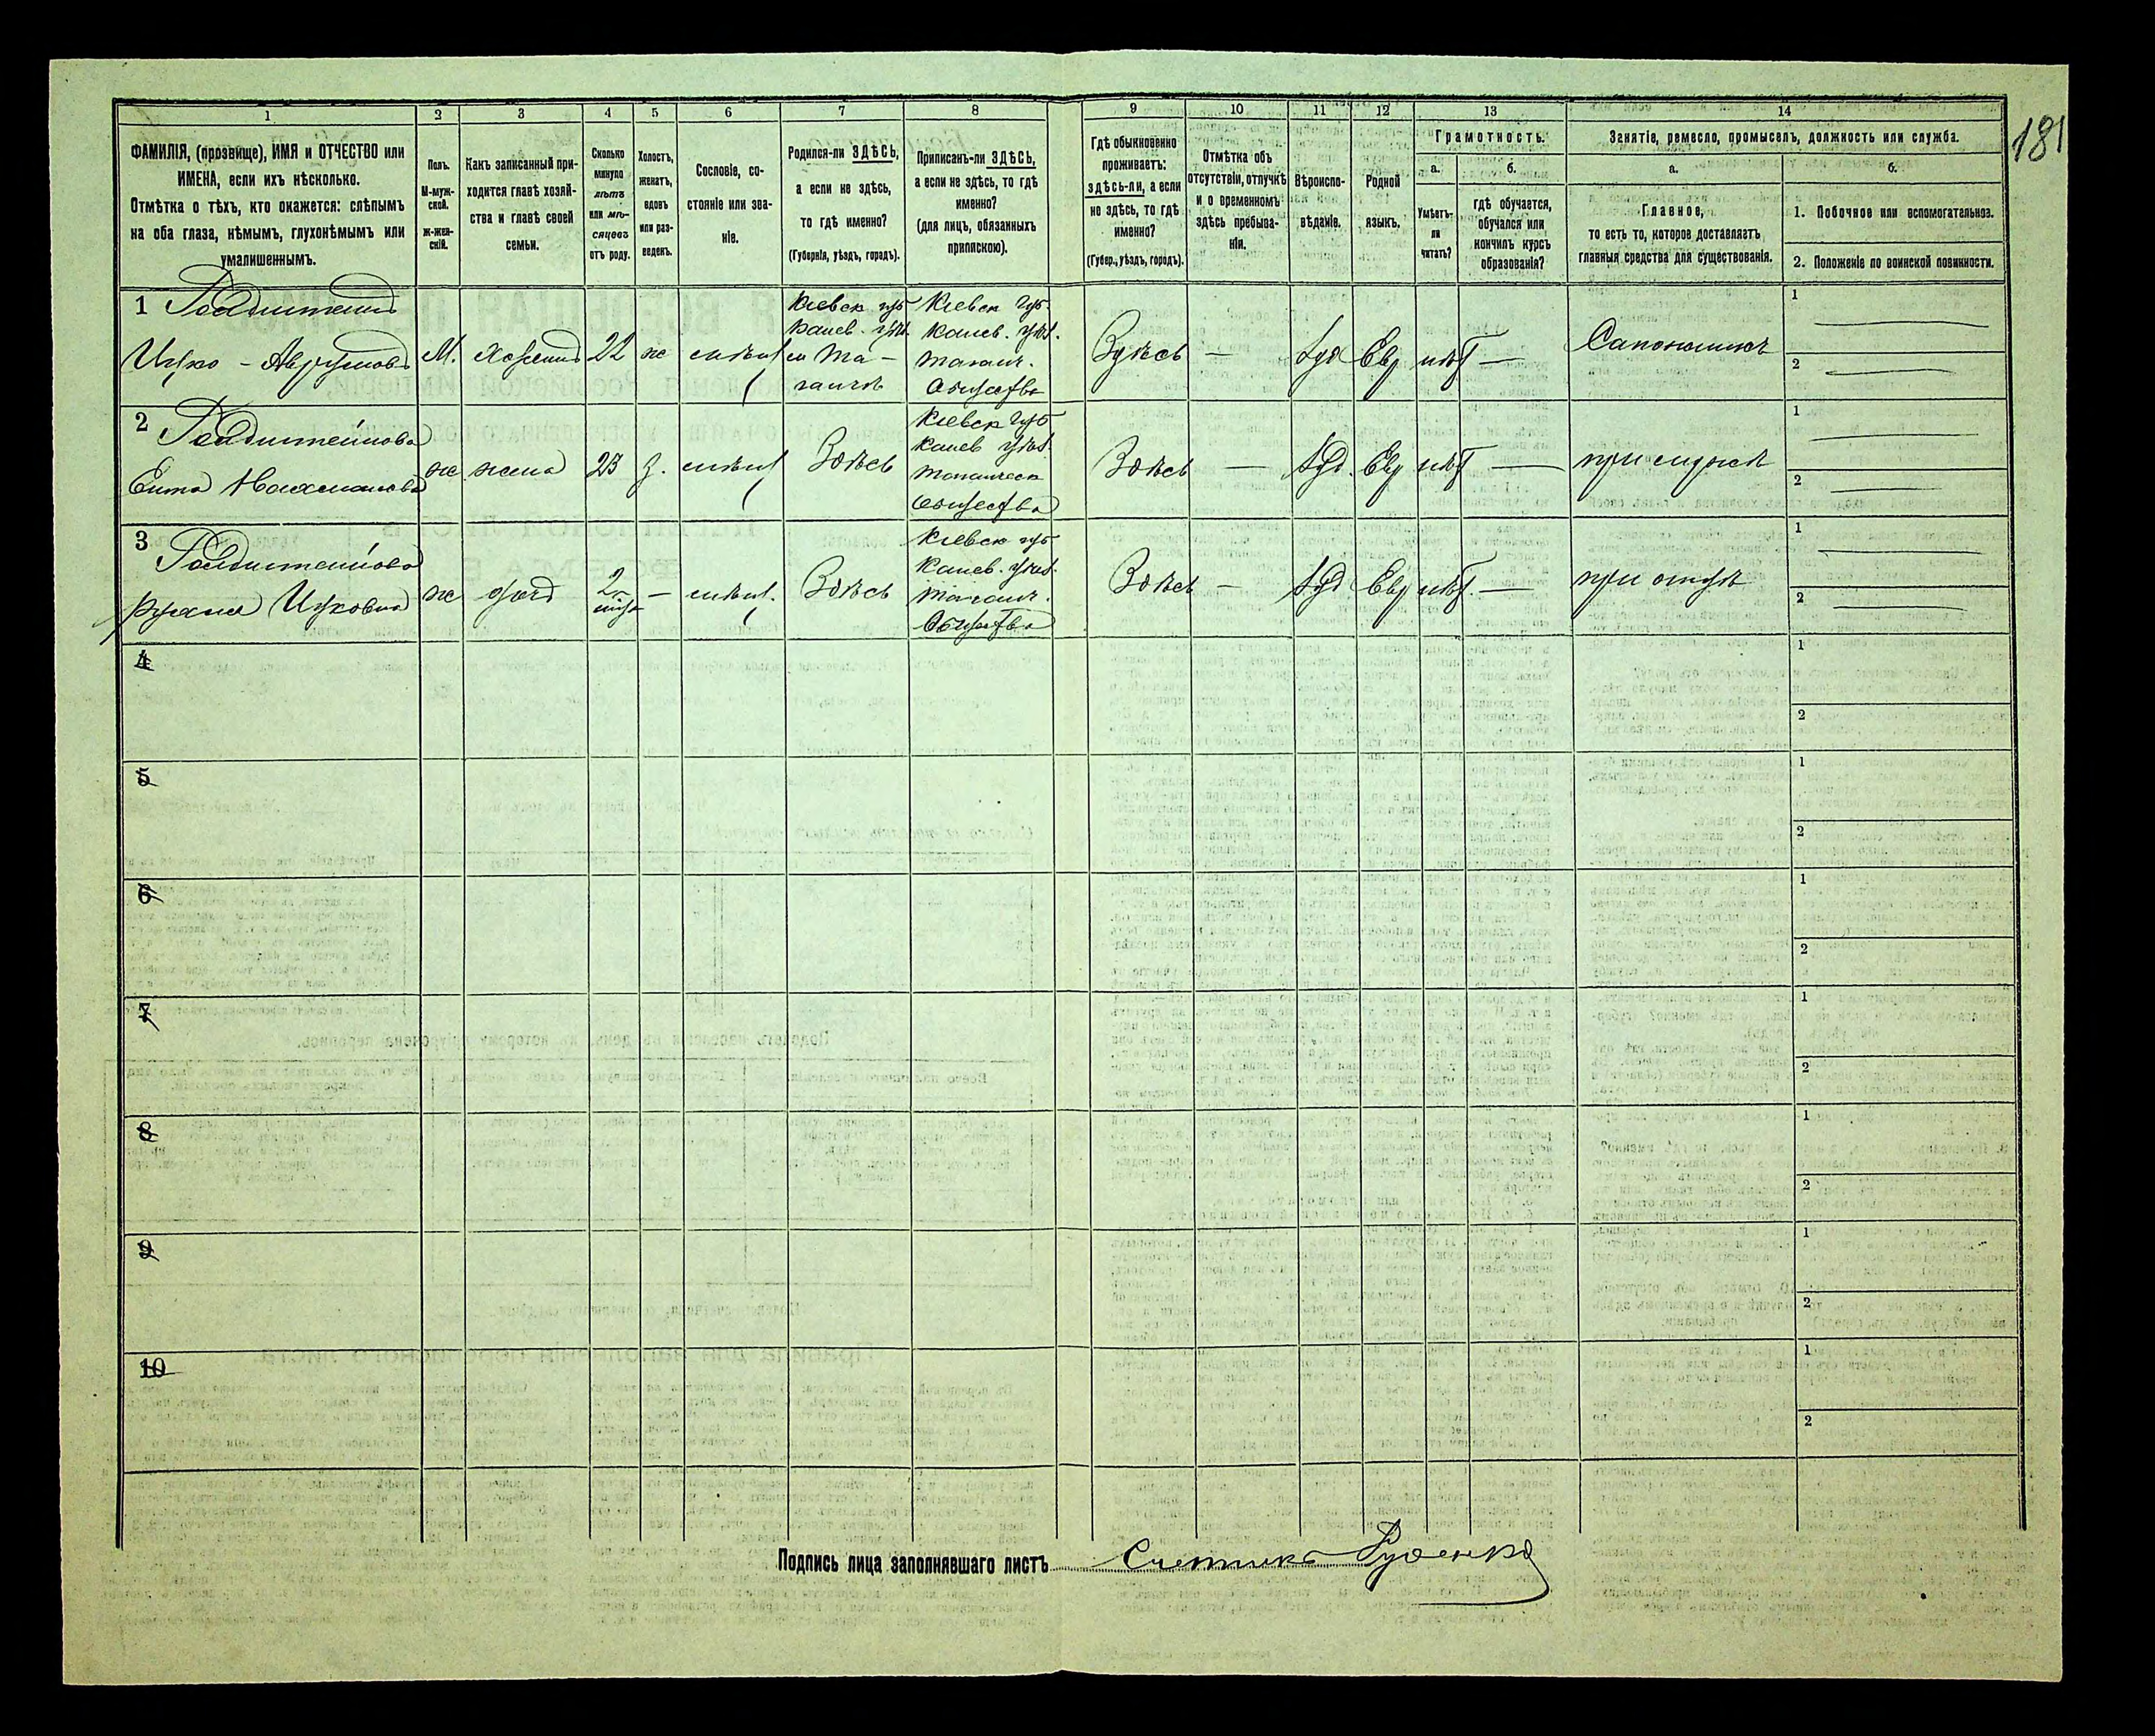 181
1
2
3
4
5
6
7
8
9
10
11
12
13
14
ФАМИЛІЯ, (прозвище), ИМЯ и ОТЧЕСТВО или
ИМЕНА, если ихъ нѣсколько.
Отмѣтка о тѣхъ, кто окажется: слѣпымъ
на оба глаза, нѣмымъ, глухонѣмымъ или
умалишеннымъ.
Полъ.
М-муж-
ской.
Ж-жен-
скій.
Какъ записанный при-
ходится главѣ хозяй-
ства и главѣ своей
семьи.
Сколько
минуло
лѣтъ
или мѣ-
сяцевъ
отъ роду.
Холостъ,
женатъ,
вдовъ
или раз-
веденъ.
Сословіе, со-
стояніе или зва-
ніе.
Родился-ли ЗДѢСЬ,
а если не здѣсь,
то гдѣ именно?
(Губернія, уѣздъ, городъ).
Приписанъ-ли ЗДѢСЬ,
а если не здѣсь, то гдѣ
именно?
(для лицъ, обязанныхъ
припискою).
Гдѣ обыкновенно
проживаетъ:
здѣсь-ли, а если
не здѣсь, то гдѣ
именно?
(Губер., уѣздъ, городъ).
Отмѣтка объ
отсутствіи, отлучкѣ
и о временномъ
здѣсь пребыва-
ніи.
Вѣроиспо-
вѣданіе.
Родной
языкъ.
Грамотность.
а.
Умѣетъ-
ли
читать?
б.
гдѣ обучается,
обучался или
кончилъ курсъ
образованія?
Занятіе, ремесло, промыселъ, должность или служба.
а.
Главное,
то есть то, которое доставляетъ
главныя средства для существованія.
б.
1. Побочное или вспомогательное.
2. Положеніе по воинской повинности.
1
Ицко - Аврумовъ
М.
Хозяинъ
22
ж
Кіевск губ
Канев. уѣзд.
м Та-
ганчѣ
Кіевск губ.
Канев. уѣзд.
Таганч.
Общества
Здѣсь
—
Іуд
Евр
нѣт
—
Сапожникъ
1
2
2
ж
жена
23
З.
Здѣсь
Кіевск губ
Канев уѣзд.
Таганческ
Общества
Здѣсь
—
Іуд.
Евр
нѣт
—
при мужѣ
1
2
3
Ицковна
ж
дочь
2
—
Здѣсь
Кіевск губ
Канев. уѣзд.
Таганч.
Общества
Здѣсь
—
Іуд
Евр
нѣт.
—
при отцѣ
1
2
4
1
2
5
1
2
6
1
2
7
1
2
8
1
2
9
1
2
10
1
2
Подпись лица заполнявшаго листъ
Счетчикъ Руденко